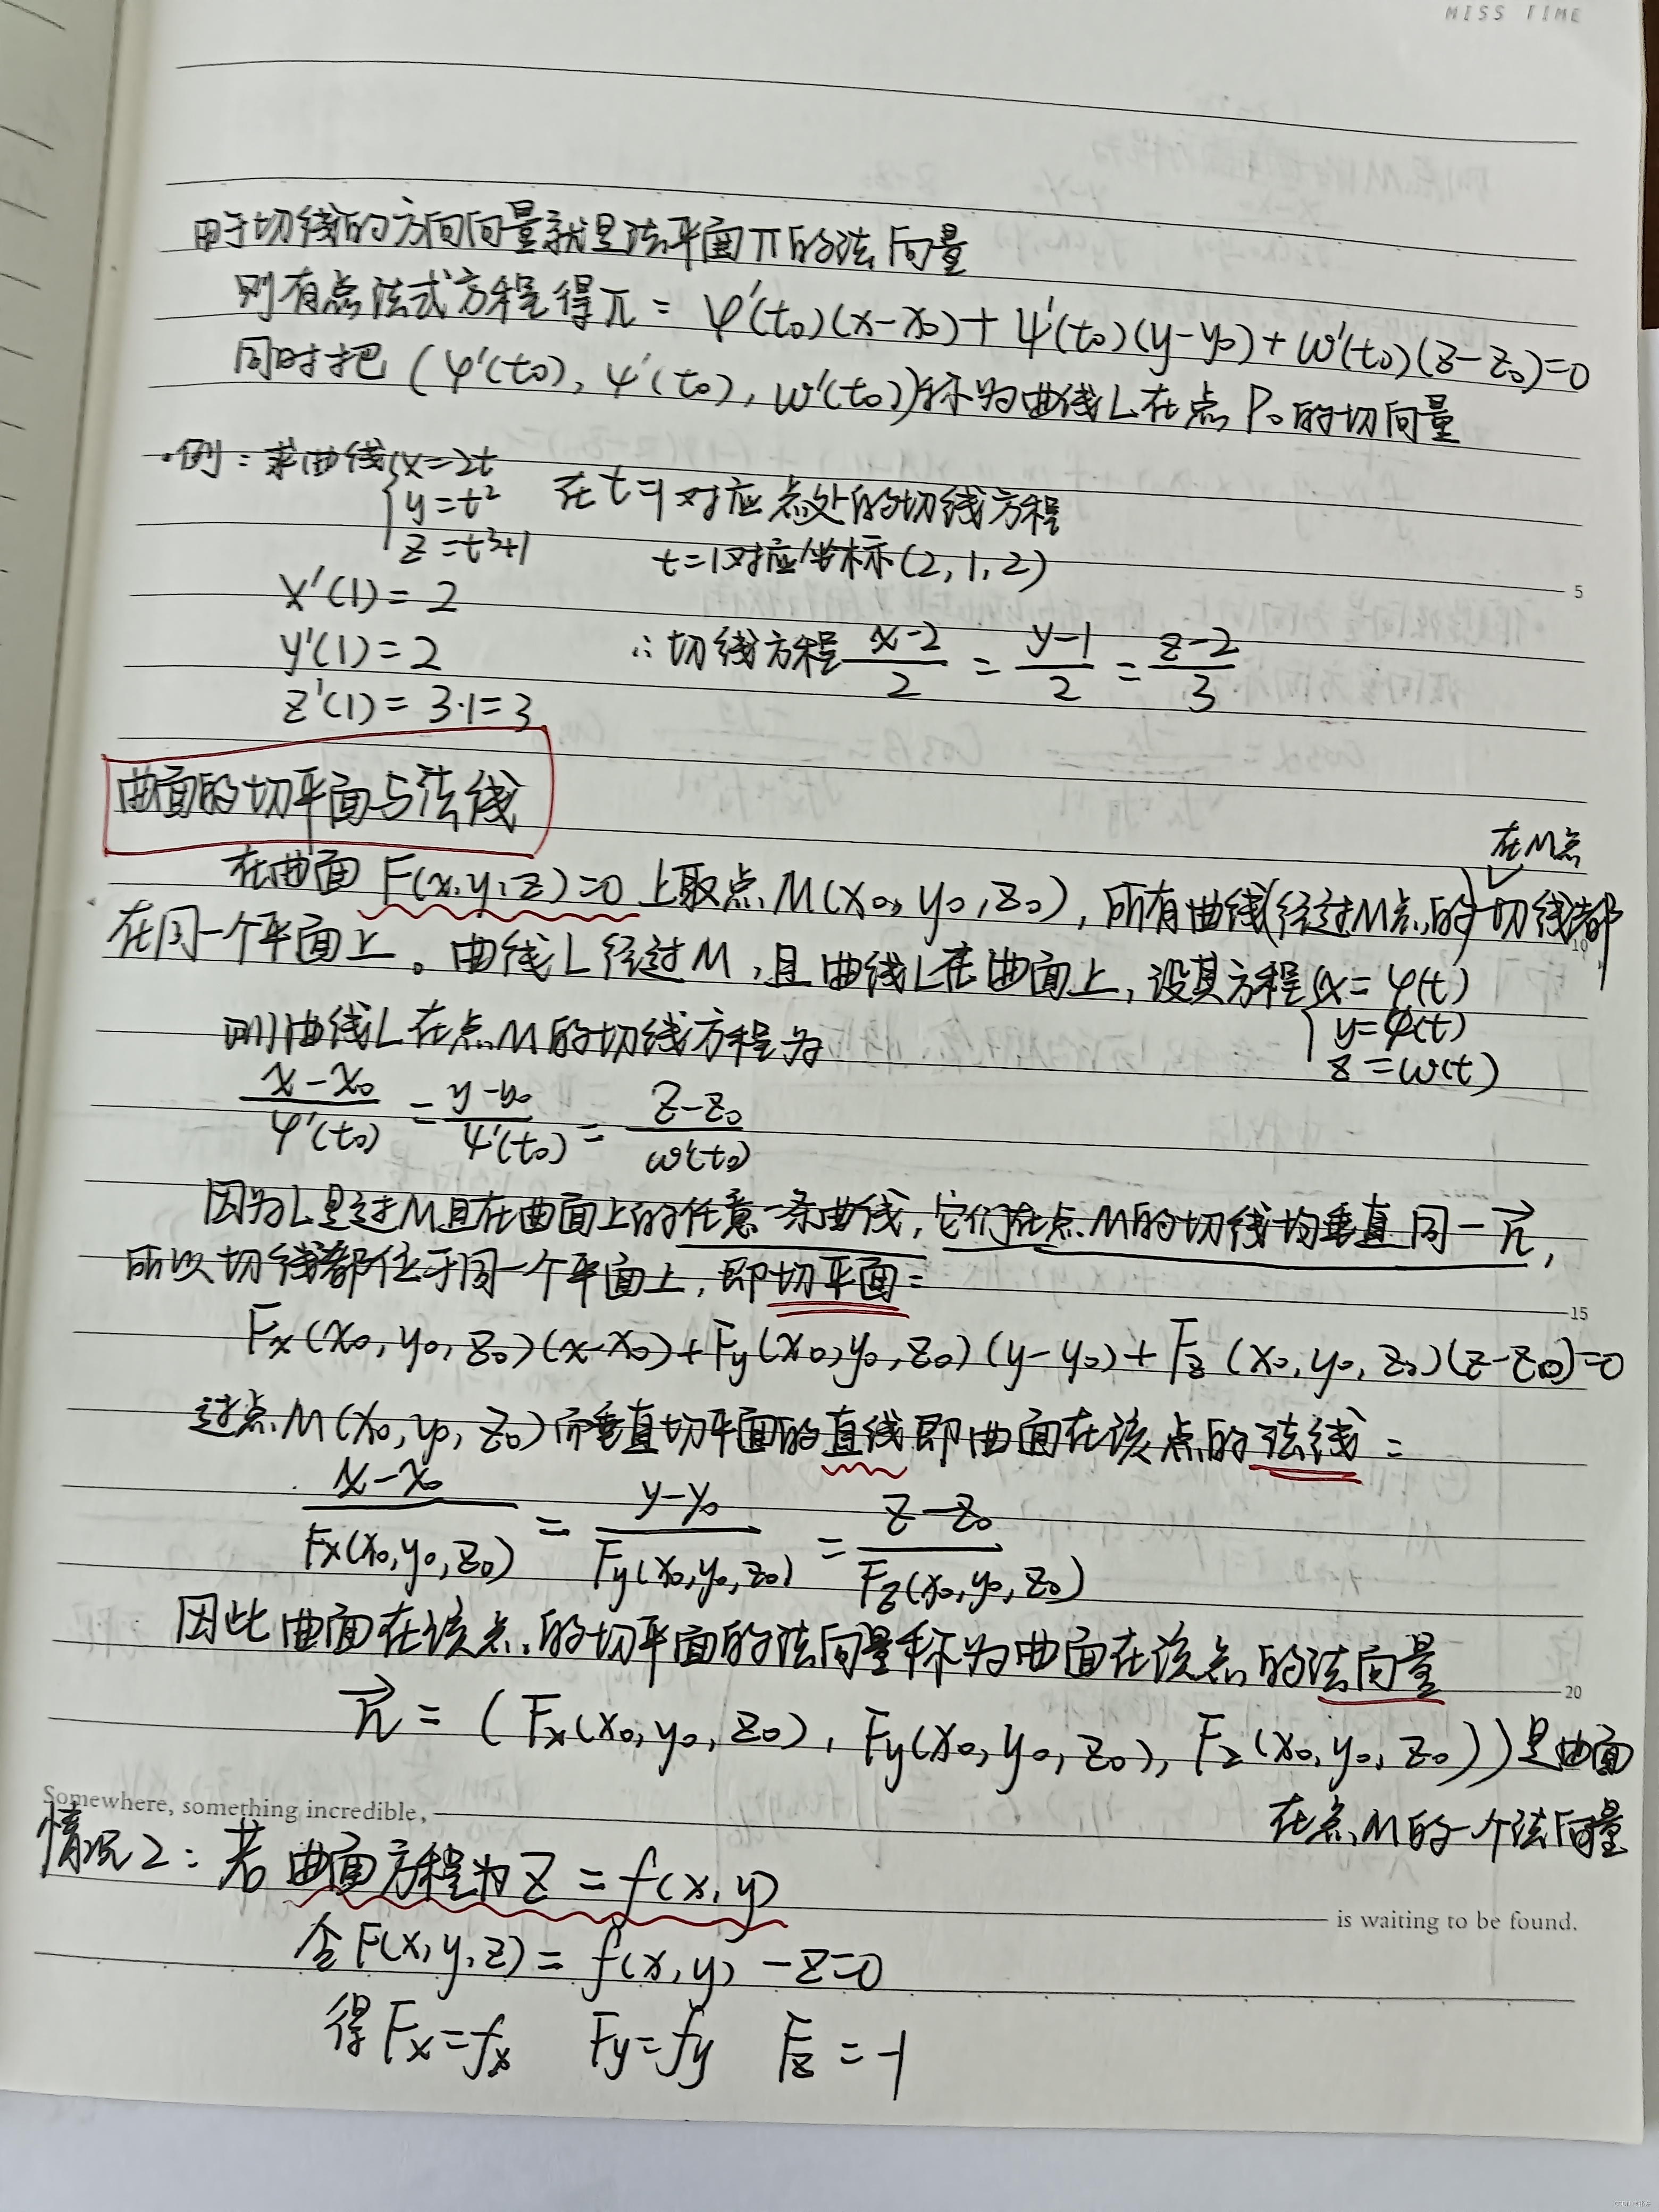 MISS TIME
由于切线的方向向量就是法平面π的法向量
则有点法式方程得π: φ'(t₀)(x-x₀)+ψ'(t₀)(y-y₀)+ω'(t₀)(z-z₀)=0
同时把(φ'(t₀),ψ'(t₀),ω'(t₀))称为曲线L在点P₀的切向量
·例:求曲线{x=2t
y=t² 在t=1对应点处的切线方程
z=t³+1 t=1对应坐标(2,1,2)
x'(1)=2
y'(1)=2 ∴切线方程 (x-2)/2 = (y-1)/2 = (z-2)/3
z'(1)=3·1=3
曲面的切平面与法线
在M点
在曲面F(x,y,z)=0上取点M(x₀,y₀,z₀),所有曲线(经过M点的)切线都
在同一个平面上。曲线L经过M,且曲线L在曲面上,设其方程{x=φ(t)
y=ψ(t)
z=ω(t)
则曲线L在点M的切线方程为
(x-x₀)/φ'(t₀) = (y-y₀)/ψ'(t₀) = (z-z₀)/ω'(t₀)
因为L是过M且在曲面上的任意一条曲线,它们在点M的切线均垂直同一n⃗,
所以切线都位于同一个平面上,即切平面:
Fx(x₀,y₀,z₀)(x-x₀)+Fy(x₀,y₀,z₀)(y-y₀)+Fz(x₀,y₀,z₀)(z-z₀)=0
过点M(x₀,y₀,z₀)而垂直切平面的直线即曲面在该点的法线:
(x-x₀)/Fx(x₀,y₀,z₀) = (y-y₀)/Fy(x₀,y₀,z₀) = (z-z₀)/Fz(x₀,y₀,z₀)
因此曲面在该点的切平面的法向量称为曲面在该点的法向量
n⃗=(Fx(x₀,y₀,z₀),Fy(x₀,y₀,z₀),Fz(x₀,y₀,z₀))是曲面
在点M的一个法向量
Somewhere, something incredible,
情况2:若曲面方程为z=f(x,y)
is waiting to be found.
令F(x,y,z)=f(x,y)-z=0
得Fx=fx Fy=fy Fz=-1
5
10
15
20